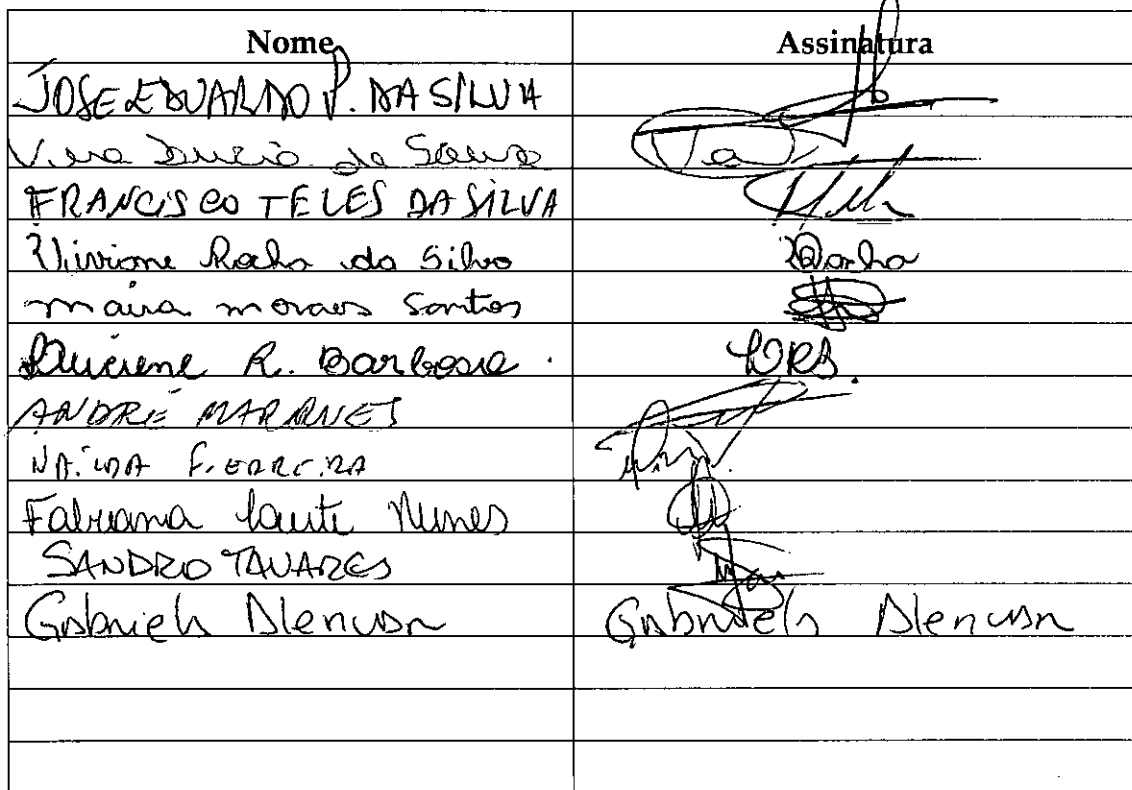 Nome Assinatura
JOSE EDUARDO P. DA SILVA
Vera de Souza
FRANCISCO TELES DA SILVA
Viviane Rocha da Silva Rocha
maira moraes Santos
Luciene R. Barbosa. LRB.
ANDRÉ MARQUES
NAILDA FERREIRA
Fabiana Nunes
SANDRO TAVARES
Gabriela Alencar Gabriela Alencar